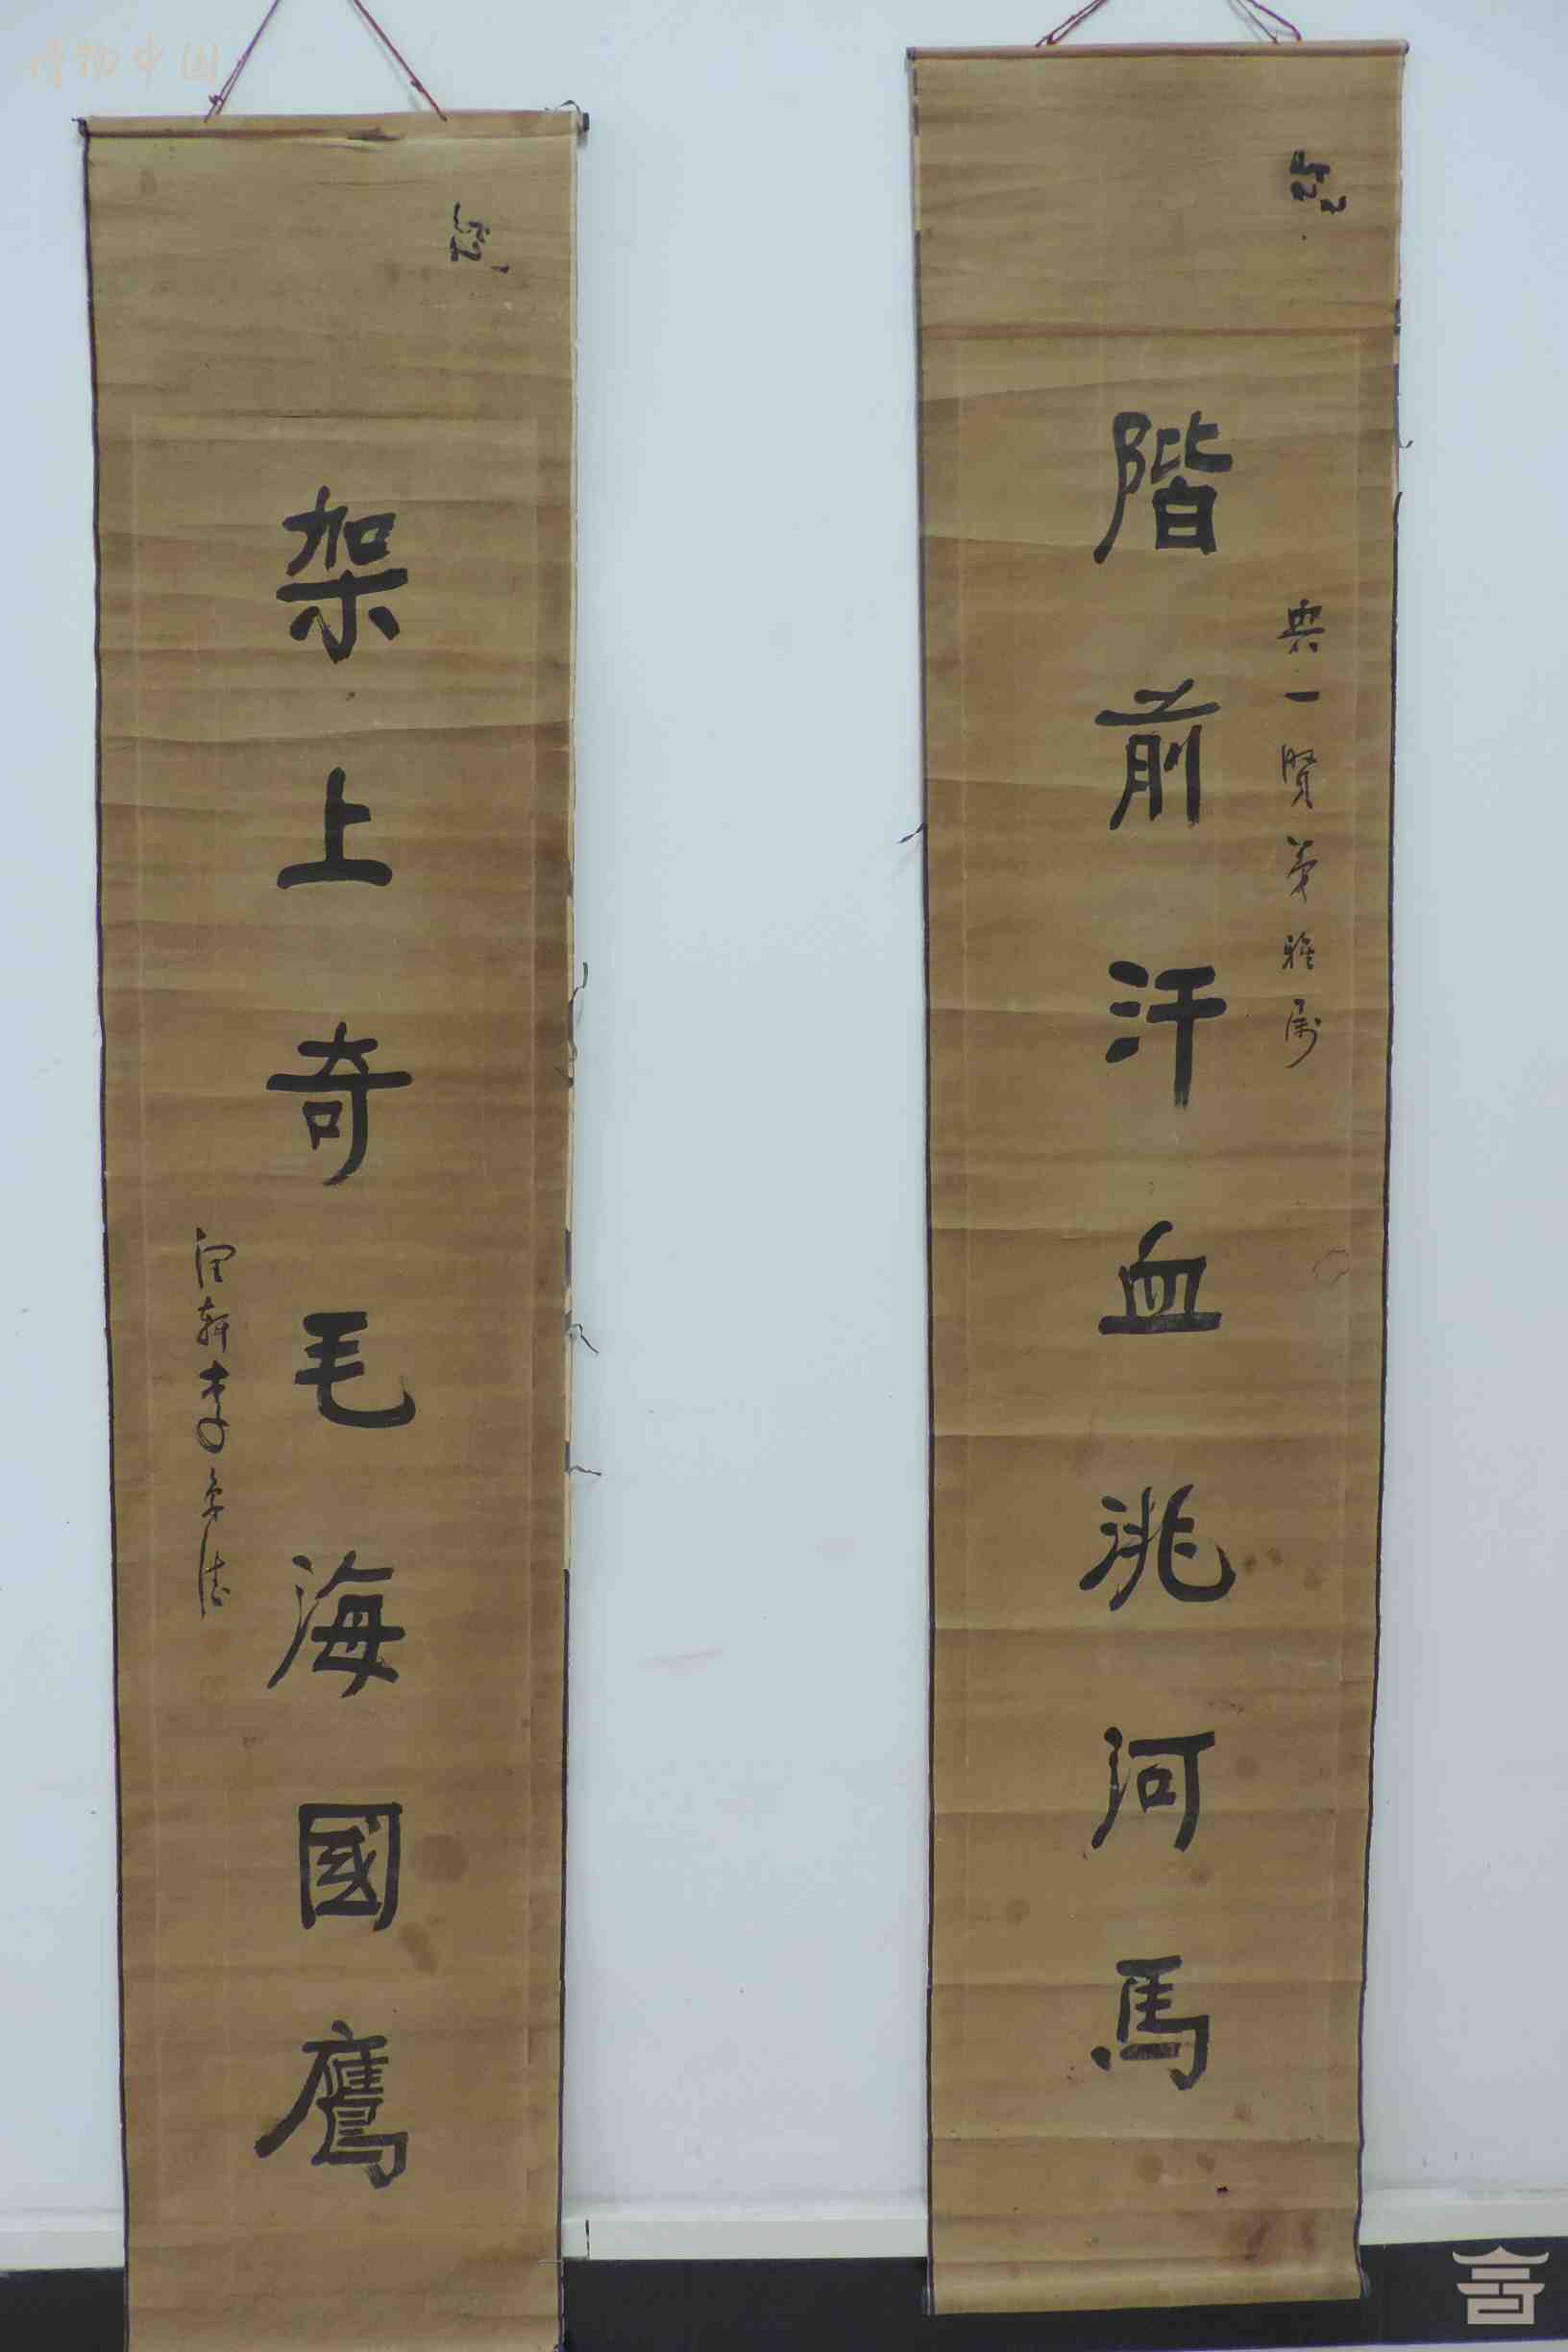 階前汗血洮河馬
典一賢弟雅屬
架上奇毛海國鷹
博物中国